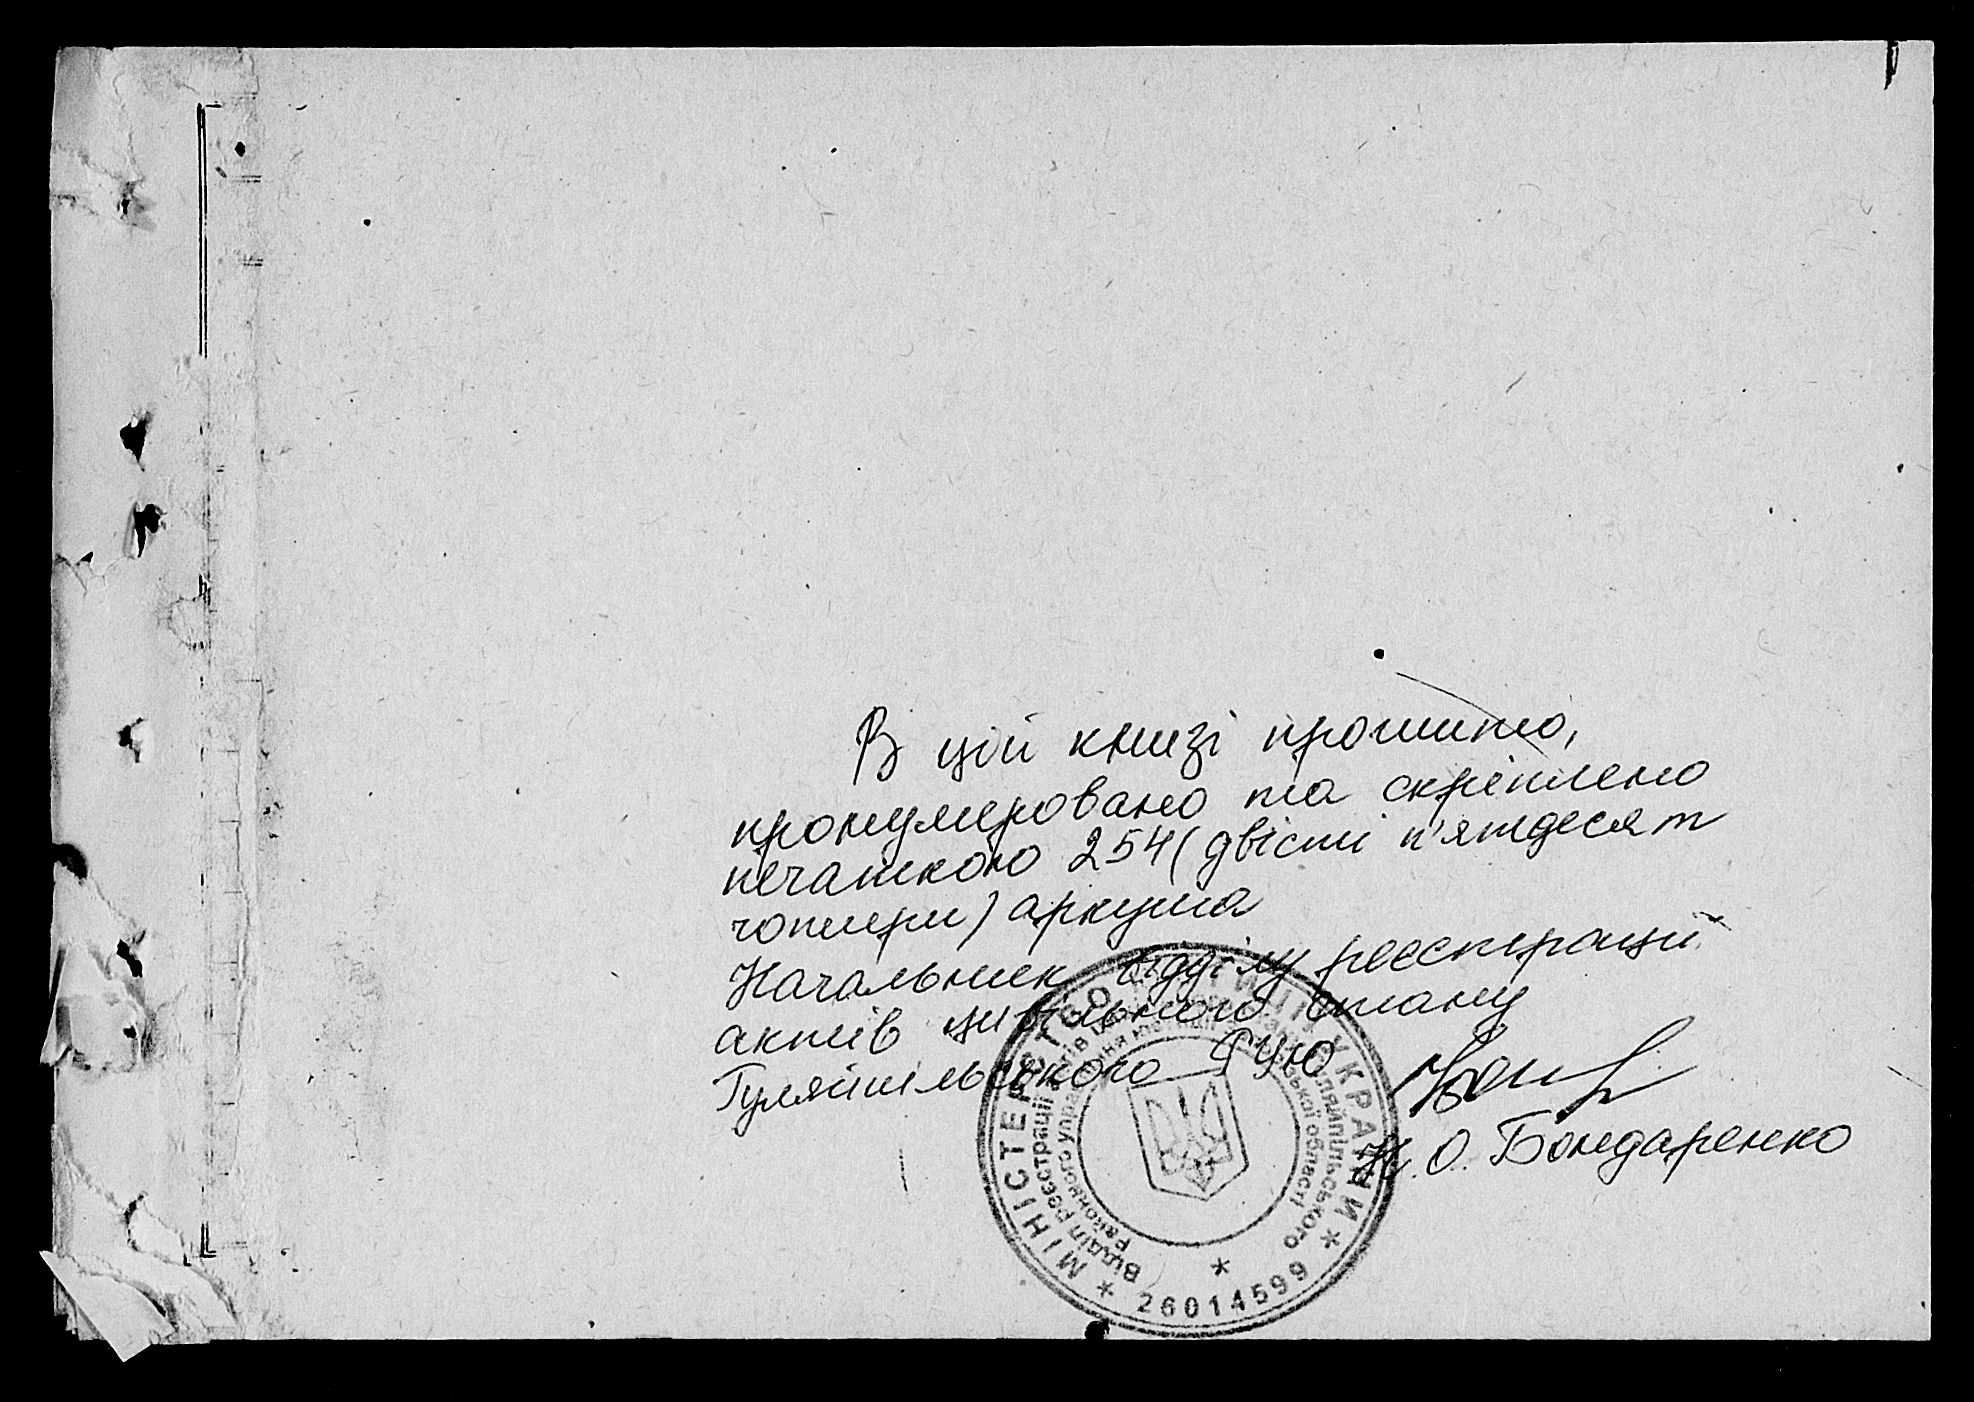 В цій книзі прошито,
пронумеровано та скріплено
печаткою 254 (двісті п'ятдесят
чотири) аркуша
Начальник відділу реєстрації
актів цивільного стану
Гуляйпільського РУЮ
Н.О. Бондаренко
МІНІСТЕРСТВО ЮСТИЦІЇ УКРАЇНИ
Відділ реєстрації актів
Районного управління юстиції
Гуляйпільського
області
* 26014599 *